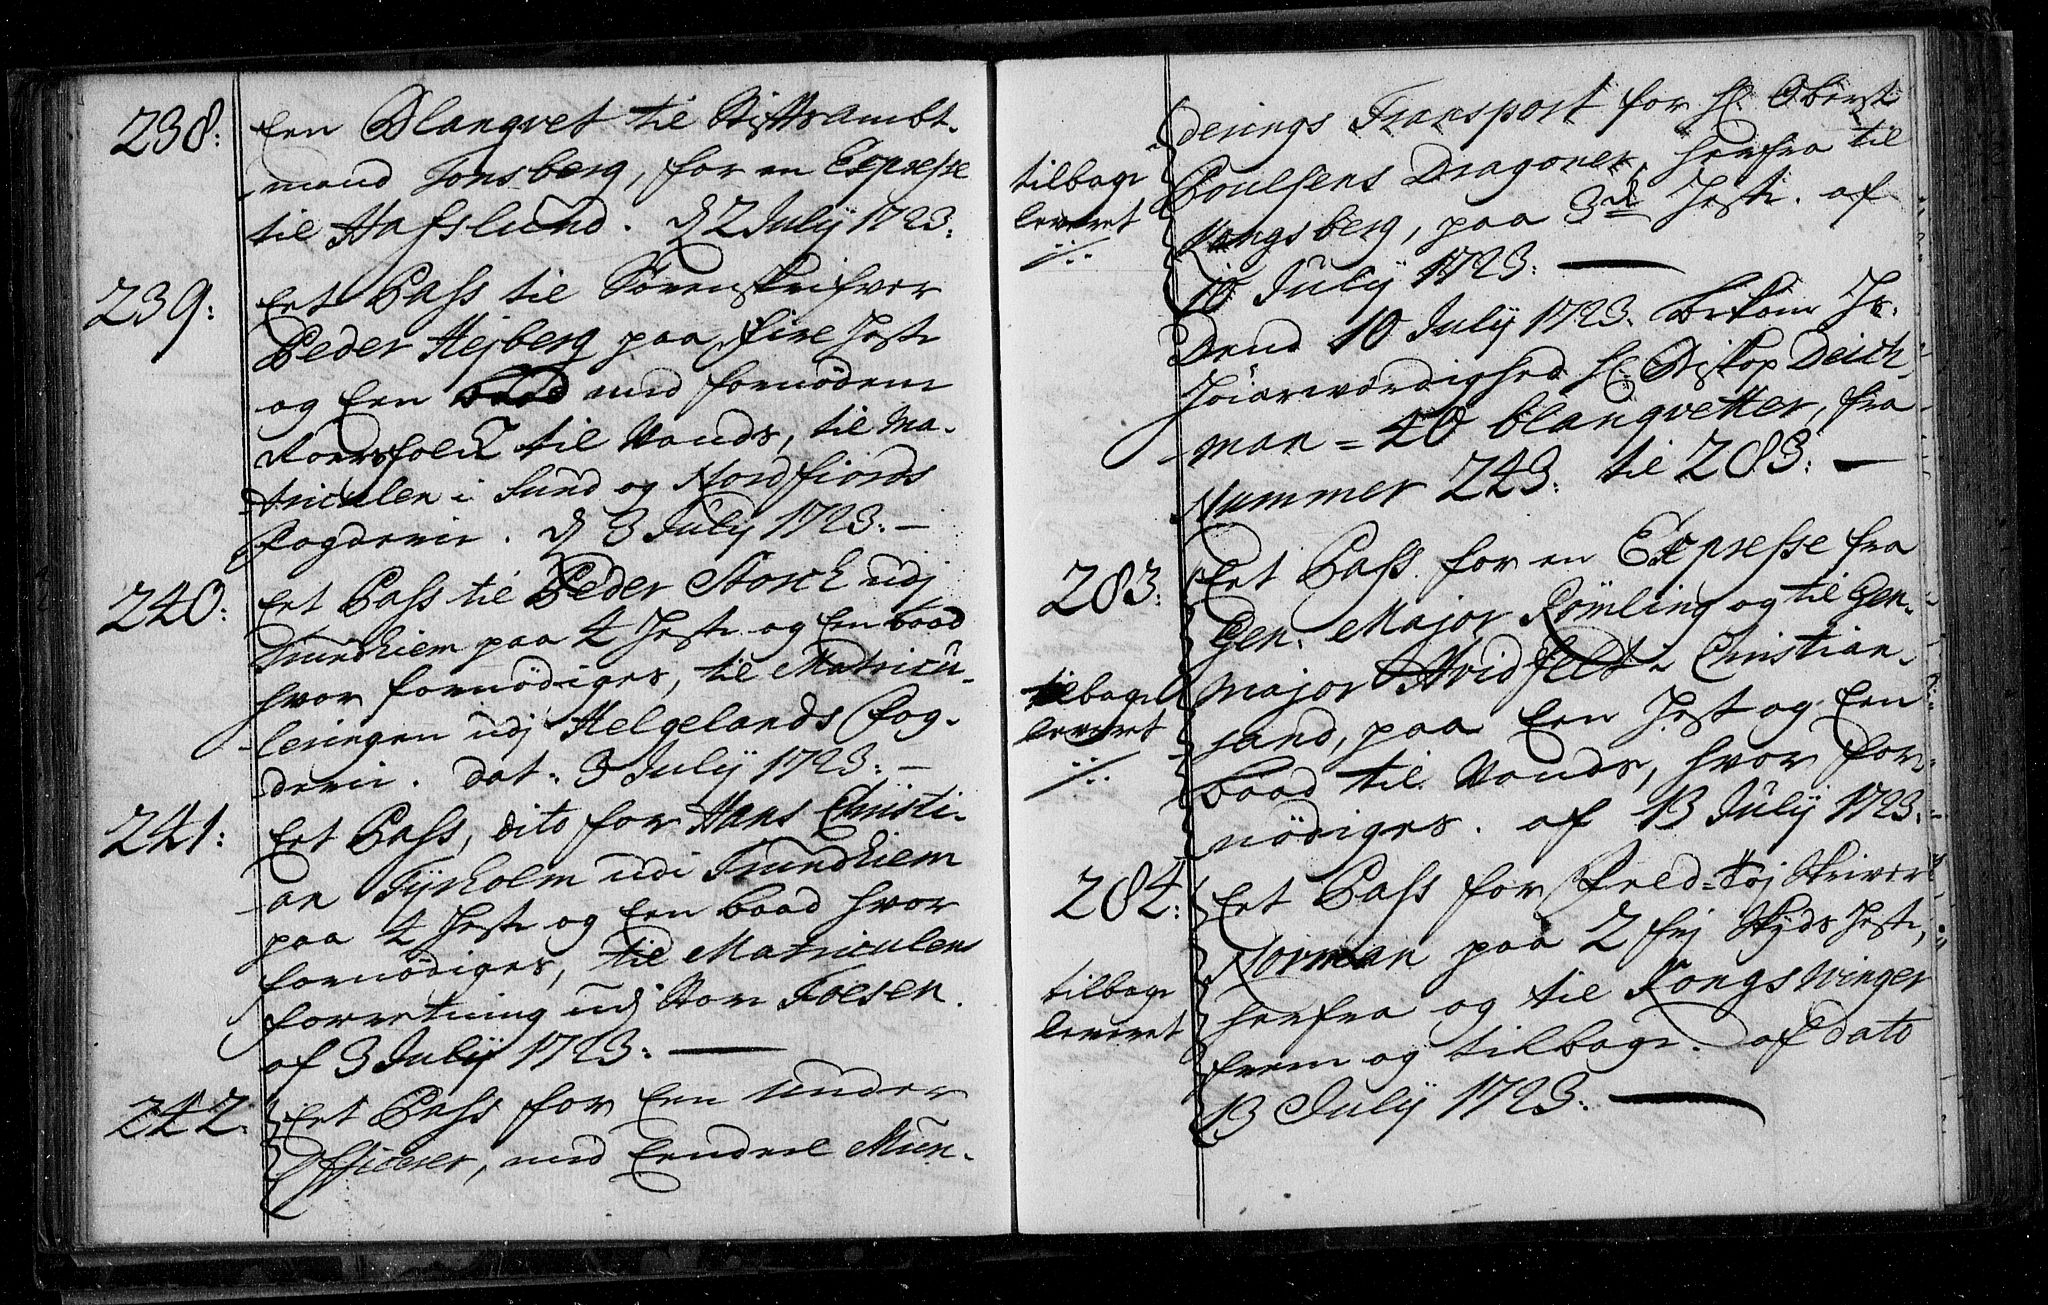 238: Een Blanqvet til Stiftsambt-
mand Tonsberg, for en Expresse
til Hafslund. d 2 Julÿ 1723:
239: Eet Pass til Sorenskrifver
Peder Hejberg paa fire Heste
og Een baad med fornødene
Roersfolck til Vands, til Ma-
triculen i Sund og Nordfjords
Fogderie. d 3 Julÿ 1723: —
240: Eet Pass til Peder Storch udj
Trundhiem paa 4 Heste og Een baad
hvor fornødiges, til Matricu-
leringen udj Helgelands Fog-
derie. dat: 3 Julÿ 1723: —
241: Eet Pass, dito for Hans Christi-
an Tÿrholm udi Trundhiem
paa 4 Heste og Een baad hvor
fornødiges, til Matriculens
forretning udj Foesen.
af 3 Julÿ 1723: —
242: Eet Pass for Een under
Officerer, med Eendeel Mun-
derings Transport for Hr: Oberst
Poulsens Dragoner, herfra til
Kongsberg, paa 3de Heste. af
10 Julÿ 1723: —
tilbage
leveret
./.
Dend 10 Julÿ 1723. bekom Hs:
Höiærværdighed Hr: Biskop Deich-
man = 40 blanqvetter, fra
Nummer 243: til 283: —
283: Eet Pass for en Expresse fra
Gen: Major Rømling og til Gen-
major Hvidfeldt i Christian-
sand, paa Een Hest og Een
baad til Vands, hvor for-
nødiges. af 13 Julÿ 1723: —
tilbage
leveret
./.
284: Eet Pass for Skriver
Norman paa 2 frj Skyds Heste,
herfra og til Kongswinger
frem og tilbage. af dato
13 Julÿ 1723: —
tilbage
leveret